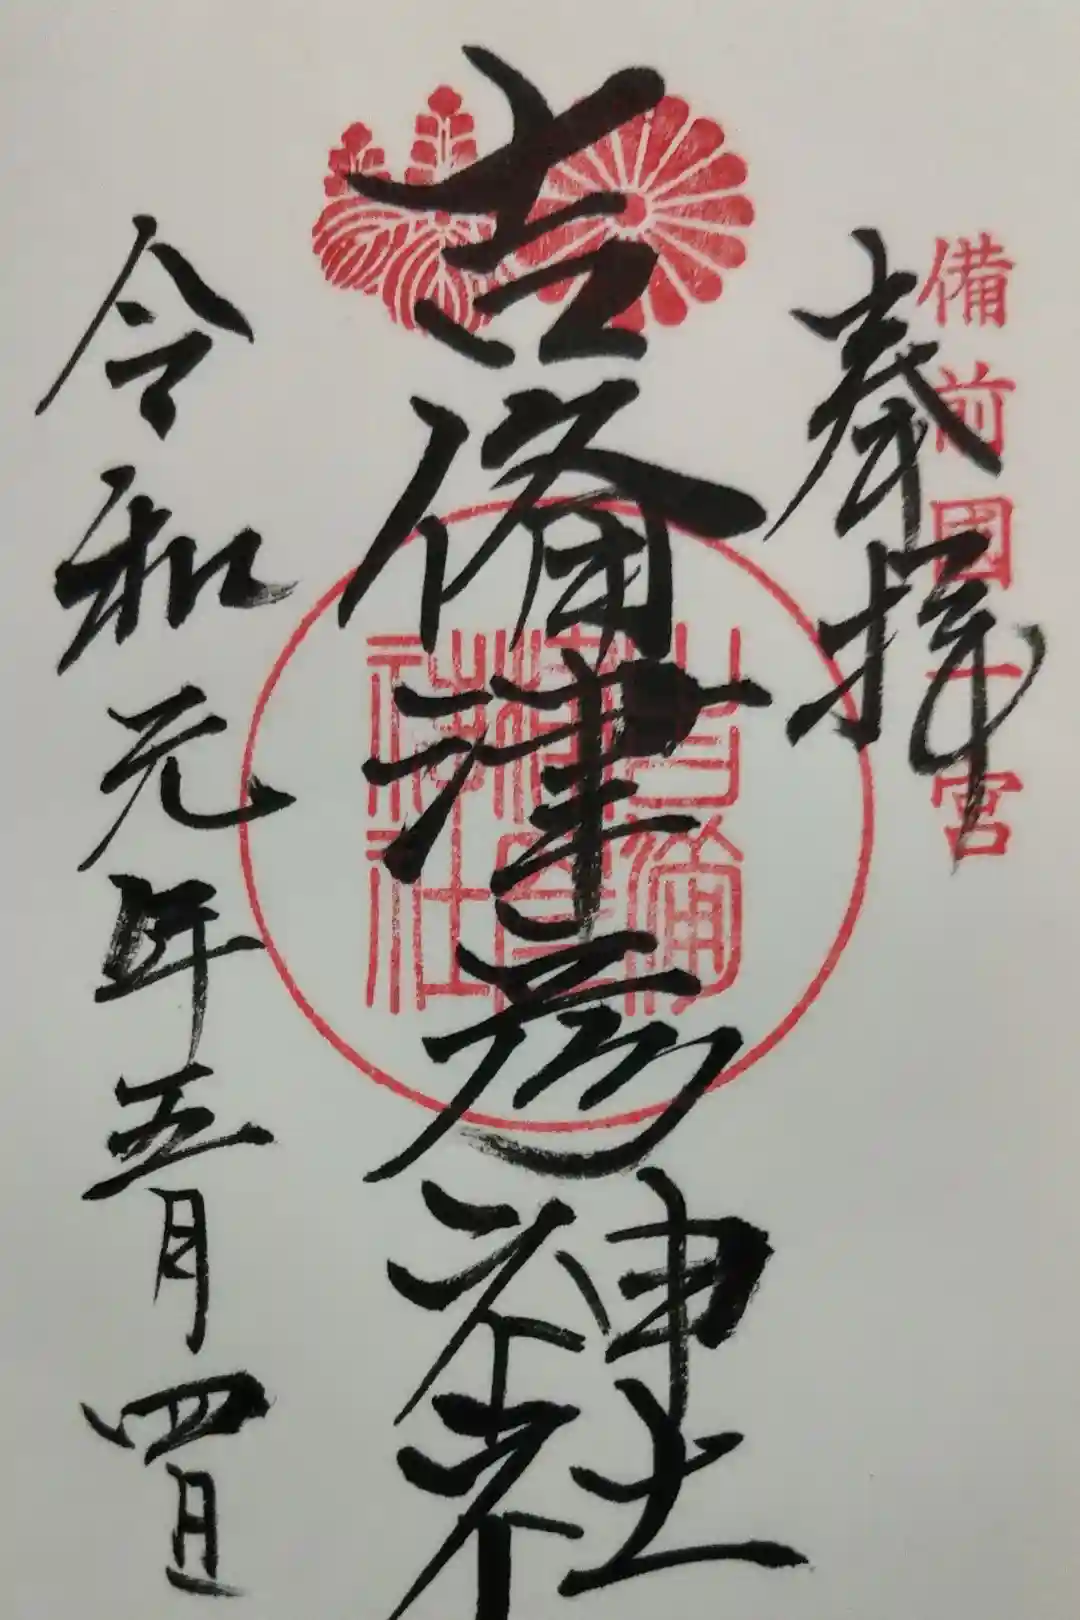 備前國一宮
奉拝
吉備津彦神社
吉備津彦神社
令和元年五月四日